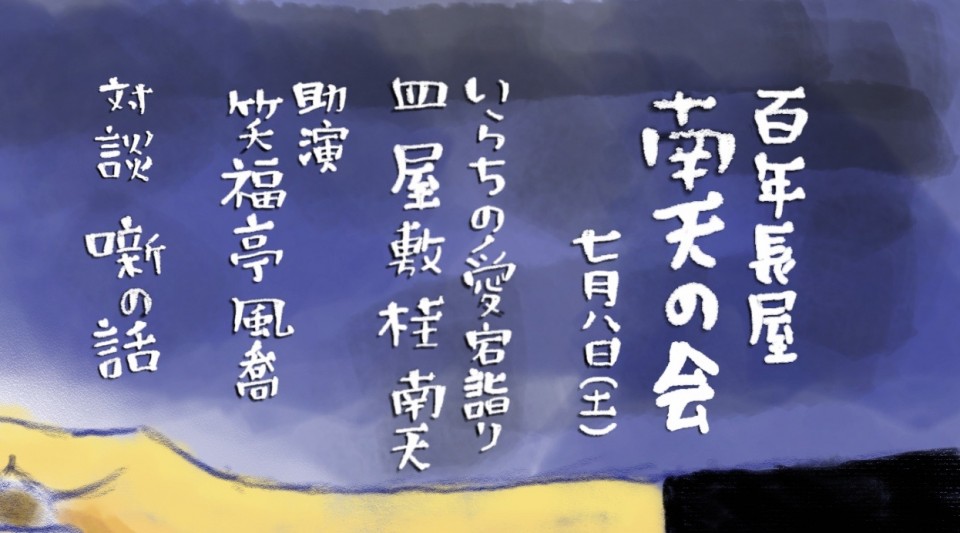 百年長屋
南天の会
七月八日(土)
いらちの愛宕詣り
皿屋敷 桂 南天
助演
笑福亭 風喬
対談 噺の話